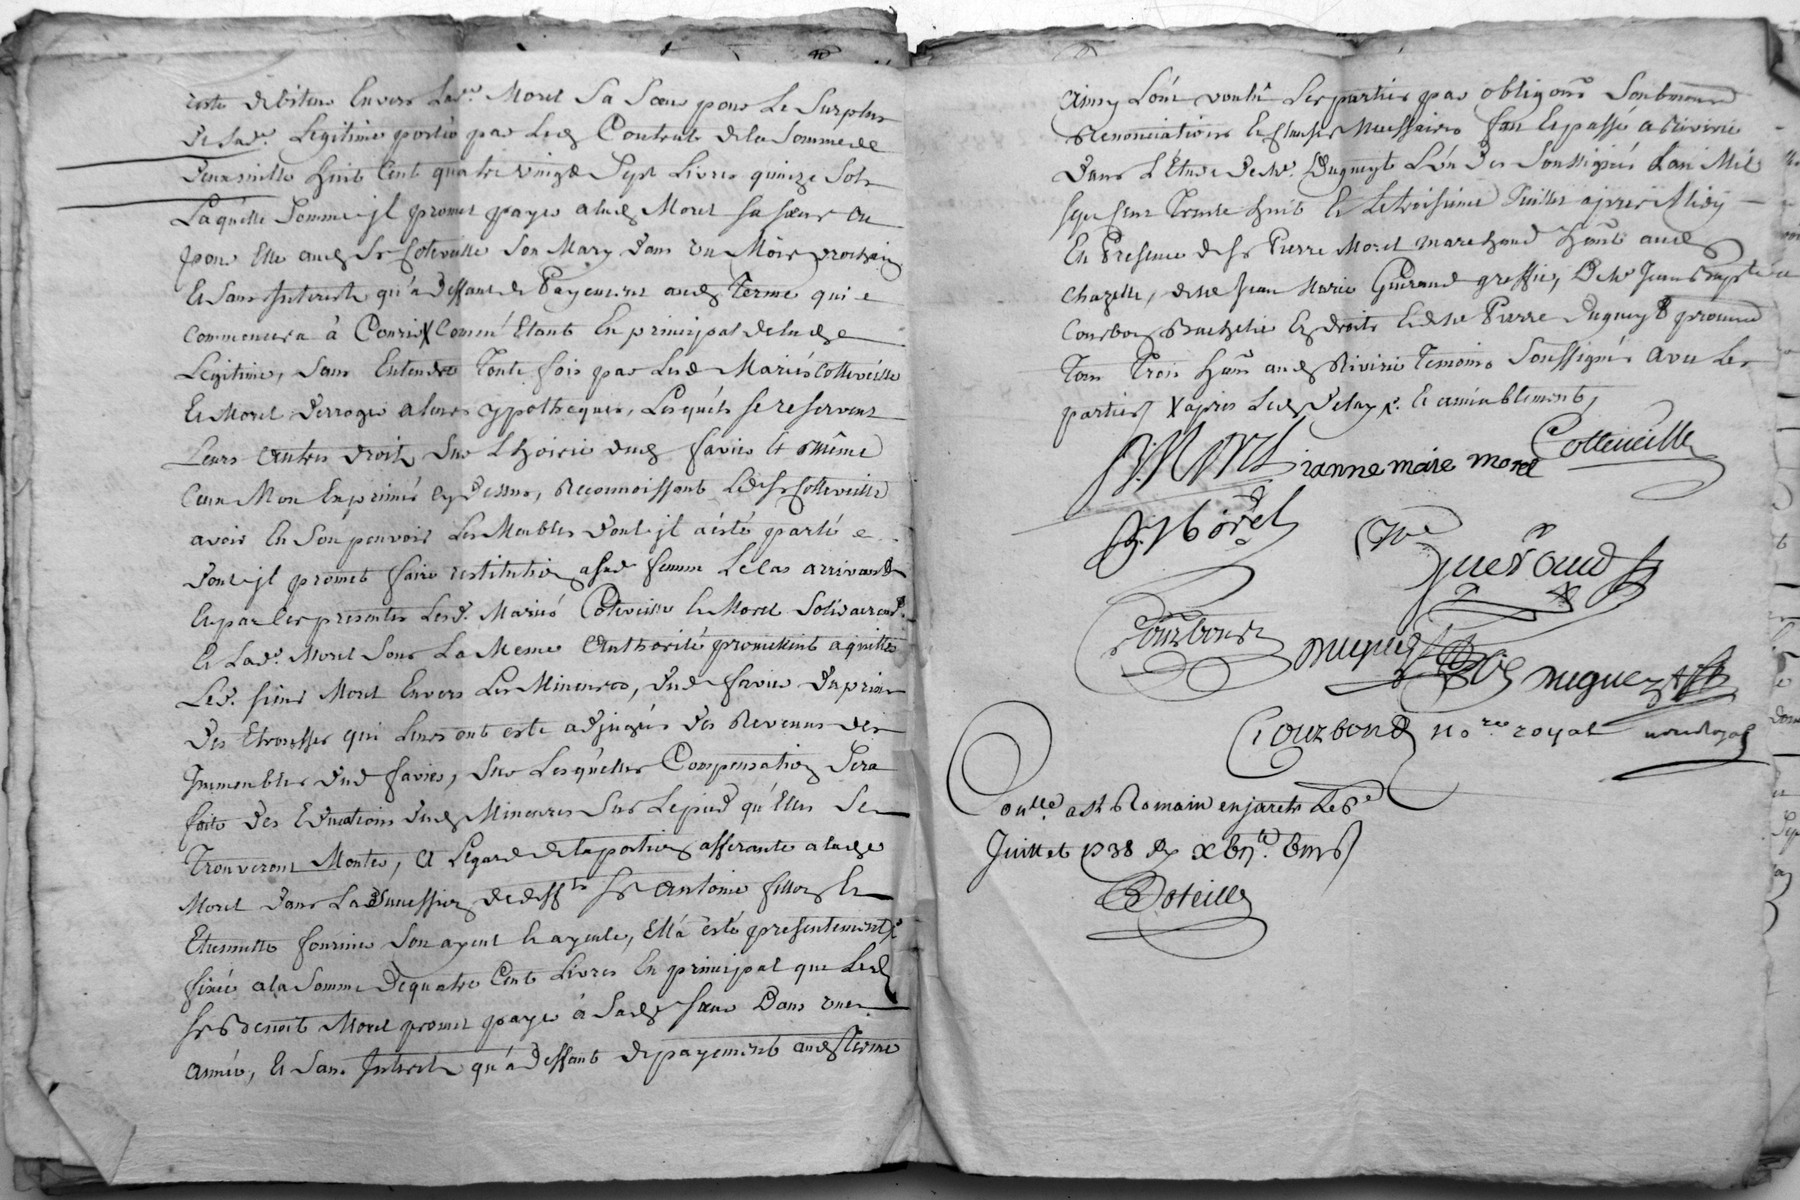 reste debiteur Envers lad.e Morel Sa Sœur pour Le Surplus
de Sad.e Legitime portée par led Contrat de la Somme de
Deux mille huit Cent quatre vingt Sept Livres quinze Sols
Laquelle Somme jl promet payer a lad Morel sa sœur ou
pour Elle aud Sr Cotteveille Son Mary dans un Mois prochain
Et Sans Interests qu'a deffaut de Payement aud Terme qui
commencera à Courir X Comm' Etant En principal de lad
Legitime, Sans Entendre Toute fois par Lesd Mariés Cotteveille
Et Morel derroger a leurs ypotheques, Lesquels se reservent
Leurs autres droits Sur L'hoirie dud Favier Et même
Ceux Non Exprimés cy dessus, Reconnoissant Led Sr Cotteveille
avoir En Son pouvoir Les Meubles dont jl a esté parlé
dont jl promet faire restitution a sad femme Le Cas arrivant
Et par les presentes Lesd. Mariés Cotteveille Et Morel Solidairem.t
Et Lad.e Morel Sous La Meme Authorité promettent aquitter
Led. sieur Morel Envers Les Mineures, dud Favier du prix
des Etrousses qui Leurs ont esté adjugés des Revenus des
Immeubles dud Favier, Sur Lesquelles Compensation Sera
faite des Educations dud Mineures Sur Le pied qu'Elles Se
Trouveront Monter, Et L'egard de la portion afferante a lad
Morel dans La Succession de deff.ts Sr Antoine fillon Et
Etiennette fournier Son ayeul Et ayeule, Ell'a esté presentement X.e
fixée a la Somme de quatre Cent Livres En principal que Led
Sr Benoit Morel promet payer à Sad Sœur Dans une
Année, Et Sans Interests qu'a deffaut de payement aud Terme
Ainsy L'ont voulu Les parties par obligons Soubmons
Renonciations Et clauses Necessaires fait Et passé a Rivirie
dans L'Etude de Me. Dugueyt L'un des Soussignés L'an Mil
sept Cent Trente huit Et Le troisieme Juillet apres Midy
En Presence de Sr Pierre Morel marchand habt aud
Chazelle, de Me Jean Marie Gueraud greffier, De Me Jean Baptte
Courbon Bachelier Es droits Et de Me Pierre Duguey procureur
Tous Trois habts aud Rivirie Temoins Soussignés avec Les
parties X apres Led delay X. Et amiablement,
B. Morel ianne marie morel Cotteveille
P. Morel Gueraud
Courbon Duguey Duguey
Courbon no.re royal no.re Royal
Con.lle a St Romain en jarets Le 6e
Juillet 1738
Boteille